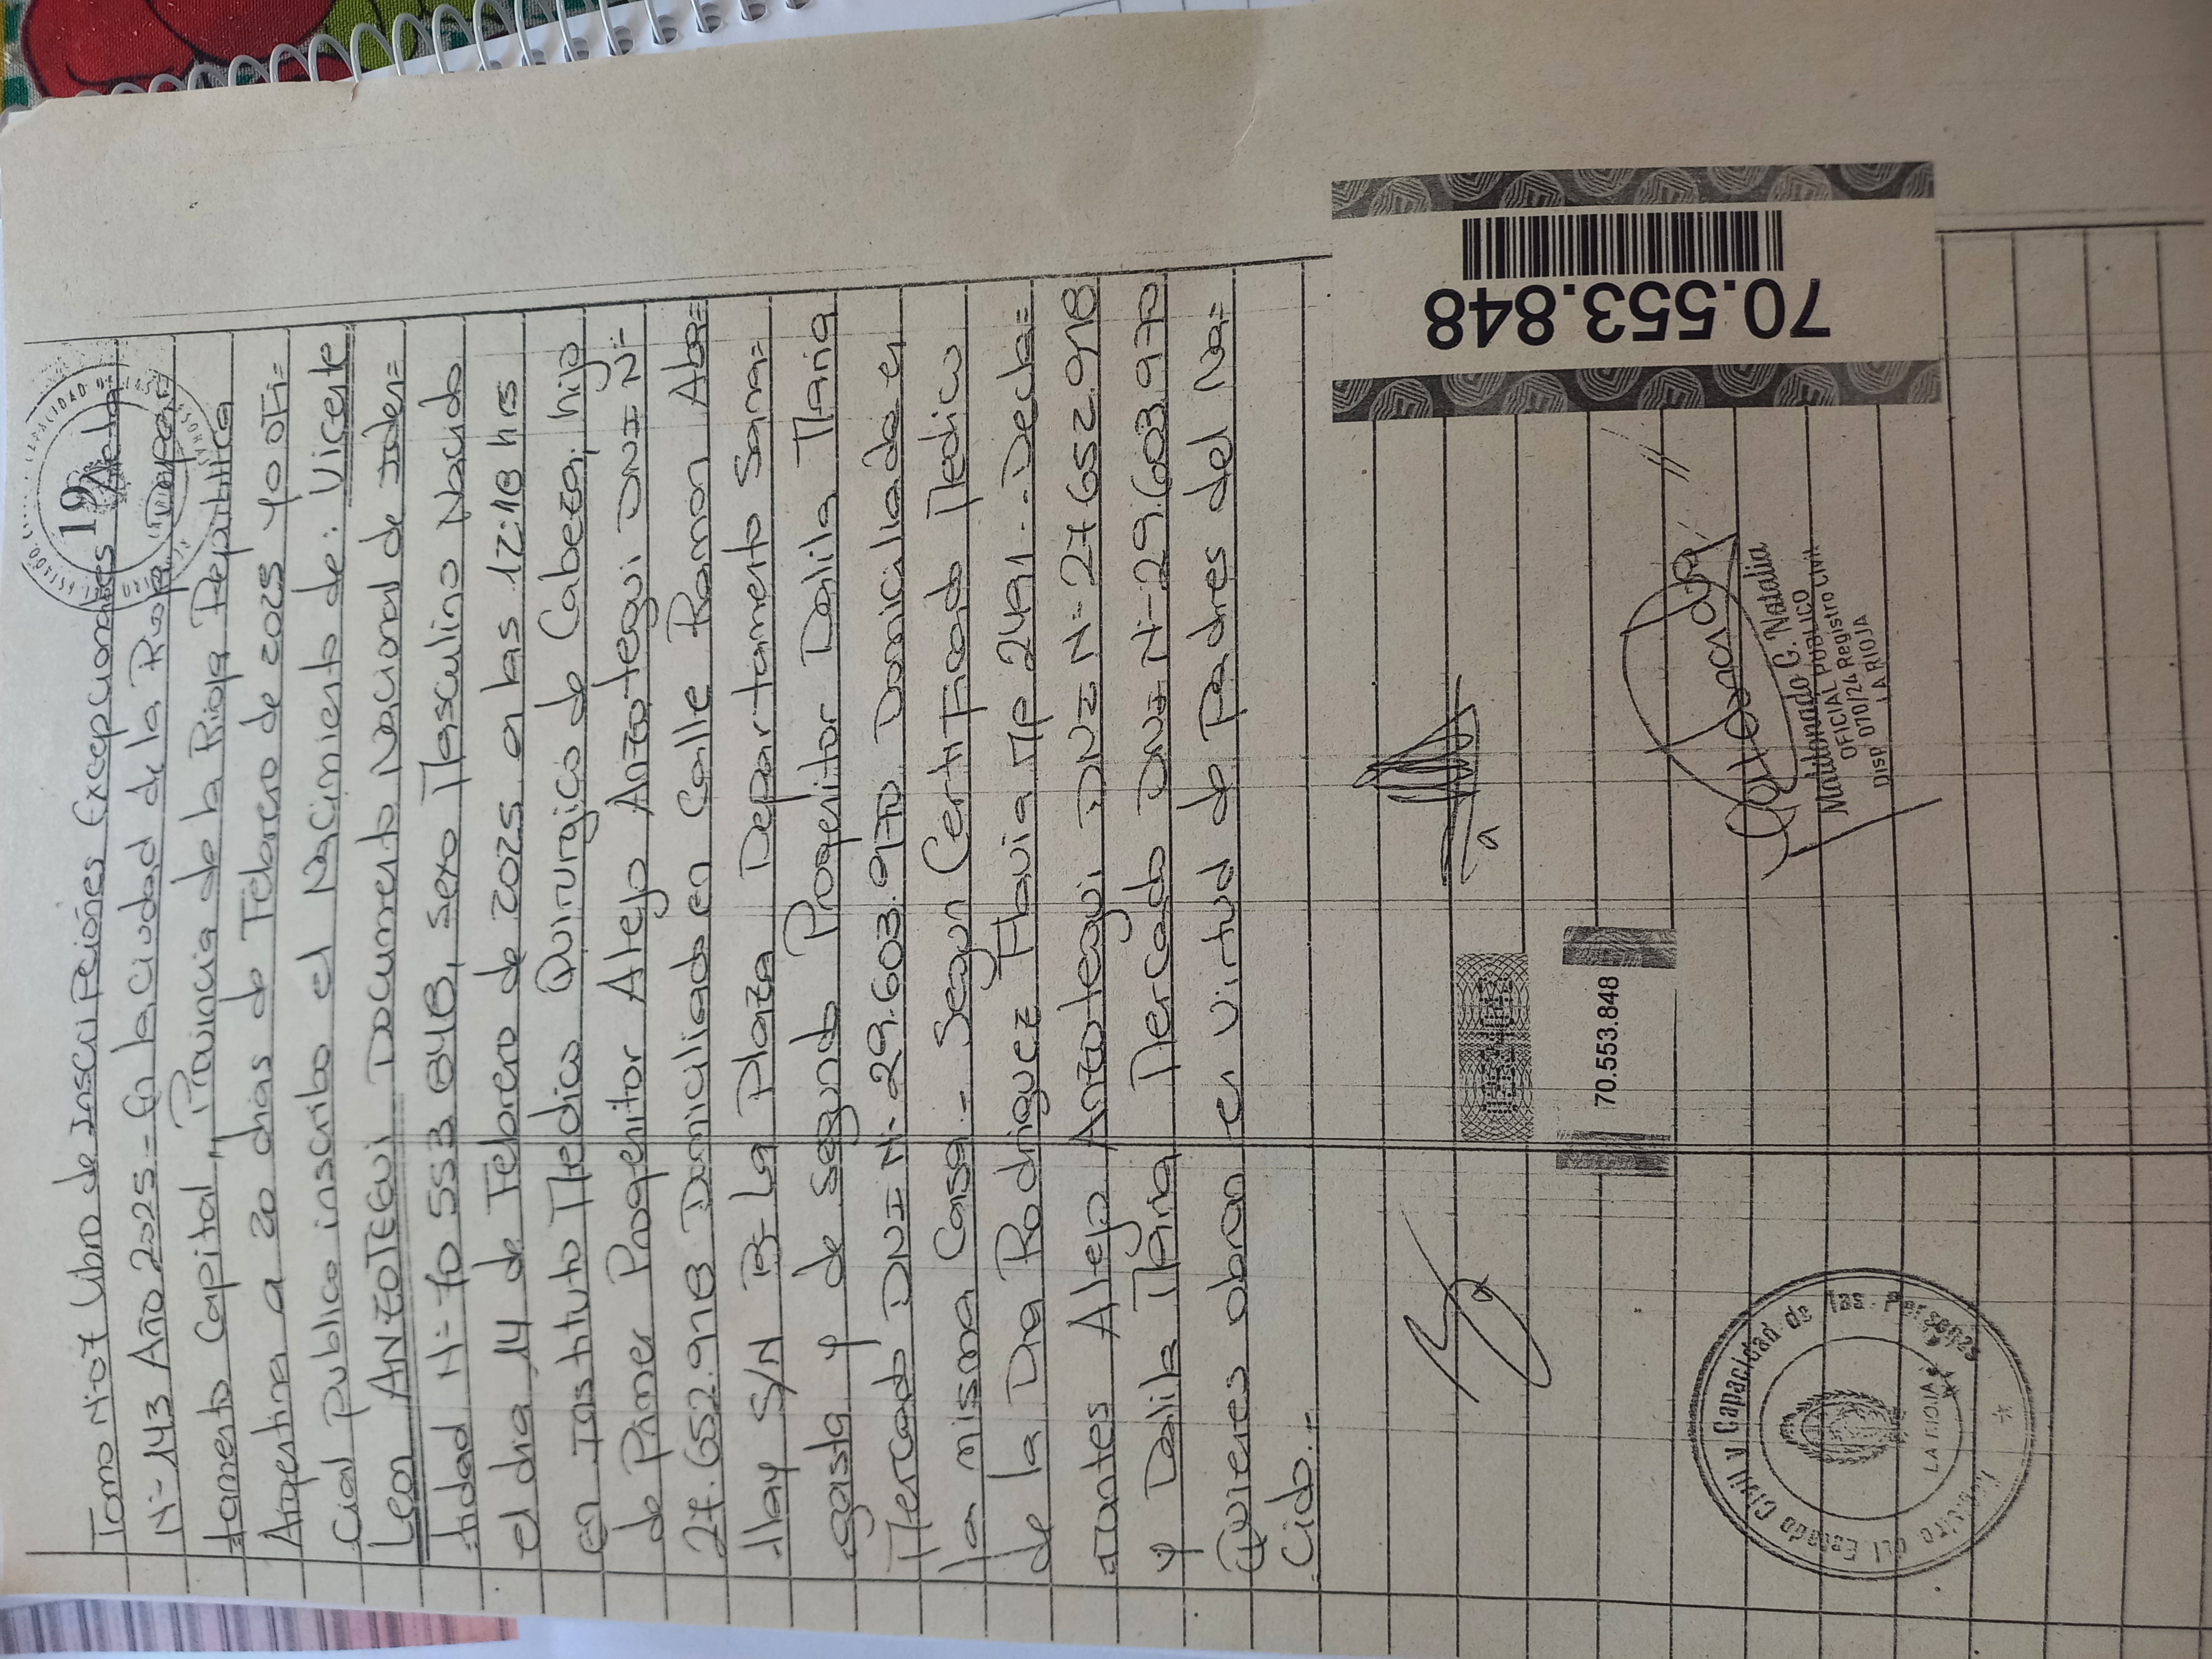 Tomo N-07 Libro de Inscripciones Excepcionales Acta
N- 143 Año 2025 - En la ciudad de la Rioja, Depar=
tamento Capital, Provincia de la Rioja Republica
Argentina a 20 dias de Febrero de 2025 Yo Ofi=
cial Publico inscribo el Nacimiento de: Vicente
Leon ANZOTEGUI Documento Nacional de Iden=
tidad N- 70 553 848, Sexo Masculino Nacido
el dia 14 de Febrero de 2025 a las 12:18 hrs
en Instituto Medico Quirurgico de Cabeza, hijo
de Primer Progenitor Alejo Anzotegui DNI N-
27.652.918 Domiciliado en Calle Ramon Aba=
llay S/N B- La Plaza Departamento Sana=
gasta y de Segundo Progenitor Dalila Maria
Mercado DNI N- 29.603.970 Domiciliada en
la misma Casa.- Segun Certificado Medico
de la Dra Rodriguez Flavia MP 2491.- Decla=
rantes Alejo Anzotegui DNI N- 27 652.918
y Dalila Maria Mercado DNI N- 29.603.970
Quienes obran en virtud de Padres del Na=
cido.-
19
70.553.848
70.553.848
Maldonado G. Natalia
OFICIAL PUBLICO
Disp 070/24 Registro Civil
LA RIOJA
Registro del Estado Civil y Capacidad de las Personas
LA RIOJA